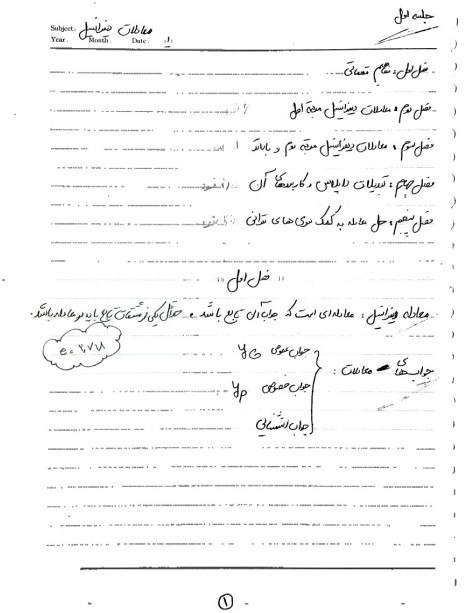 جلسه اول
Subject: معادلات دیفرانسیل
Year. Month. Date. ۱.
فصل اول: مفاهیم مقدماتی
فصل دوم: معادلات دیفرانسیل مرتبه اول
فصل سوم: معادلات دیفرانسیل مرتبه دوم و بالاتر
فصل چهارم: تبدیلات لاپلاس و کاربردهای آن
فصل پنجم: حل معادله به کمک سری های توانی
"فصل اول"
معادله دیفرانسیل: معادله ای است که جواب آن تابع باشد. حداقل یکی از مشتقات تابع باید در معادله باشد.
e = ۲.۷۱
جواب های معادلات:
جواب عمومی yG
جواب خصوصی yp
جواب استثنایی
۱